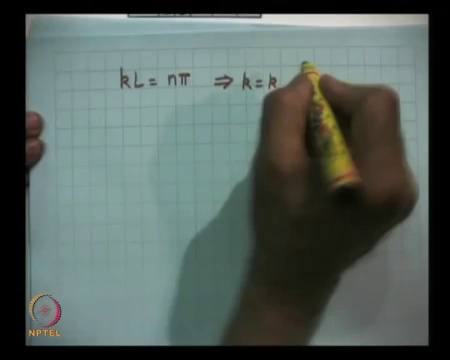 kL = nπ ⇒ k = k
NPTEL